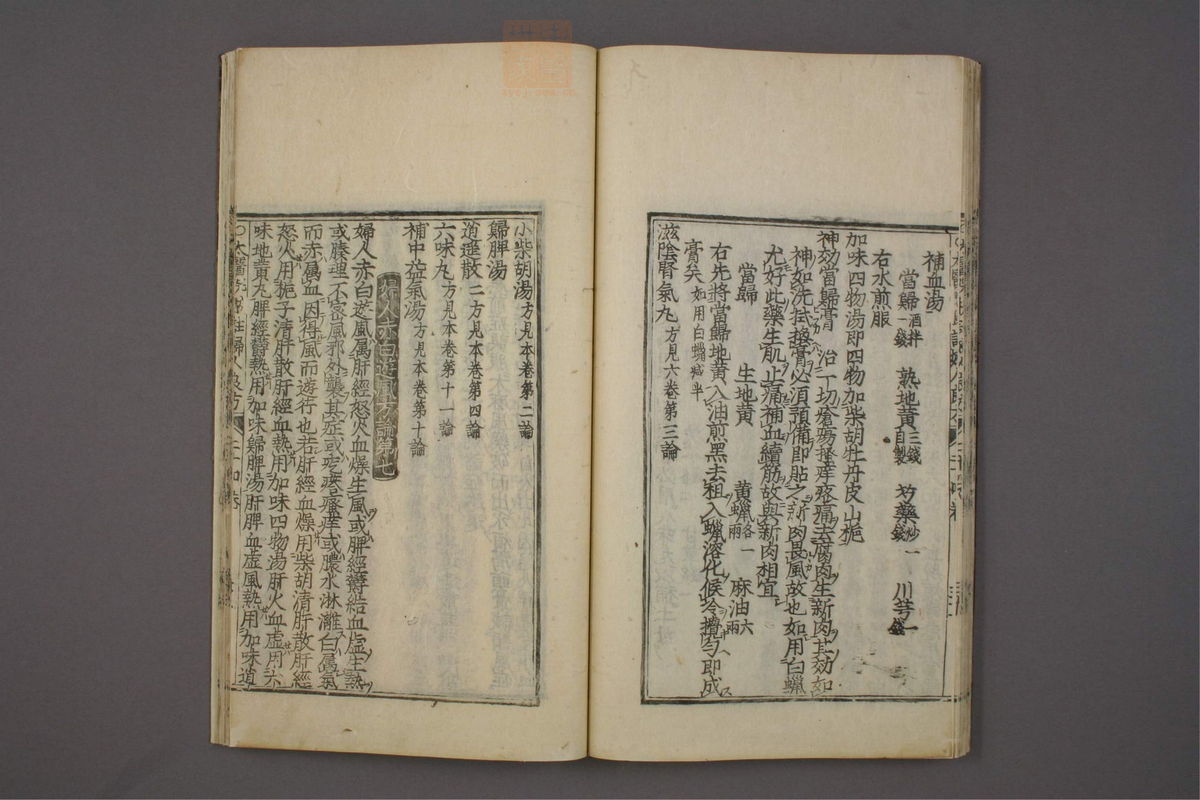 補血湯
當歸酒拌一錢 熟地黃三錢自製 芍藥炒一錢 川芎一錢
右水煎服
加味四物湯即四物加柴胡牡丹皮山梔
神効當歸膏 治一切瘡瘍搔痒疼痛去腐肉生新肉其効如
神如洗拭換膏必須預備即貼之新肉畏風故也如用白蠟
尤好此藥生肌止痛補血續筋故與新肉相宜
當歸 生地黃 黃蠟各一兩 麻油六兩
右先將當歸地黃入油煎黑去粗入蠟溶化候冷攪勻即成
膏矣如用白蠟減半
滋陰腎氣丸方見六卷第三論
小柴胡湯方見本卷第二論
歸脾湯
逍遙散二方見本卷第四論
六味丸方見本卷第十一論
補中益氣湯方見本卷第十論
婦人赤白遊風方論第七
婦人赤白遊風属肝經怒火血燥生風或脾經鬱結血虛生熱
或腠理不密風邪外襲其症或疙瘩瘙痒或膿水淋漓白属氣
而赤属血因得風而遊行也若肝經血燥用柴胡清肝散肝經
怒火用梔子清肝散肝經血熱用加味四物湯肝火血虛用六
味地黃丸脾經鬱熱用加味歸脾湯肝脾血虛風熱用加味逍